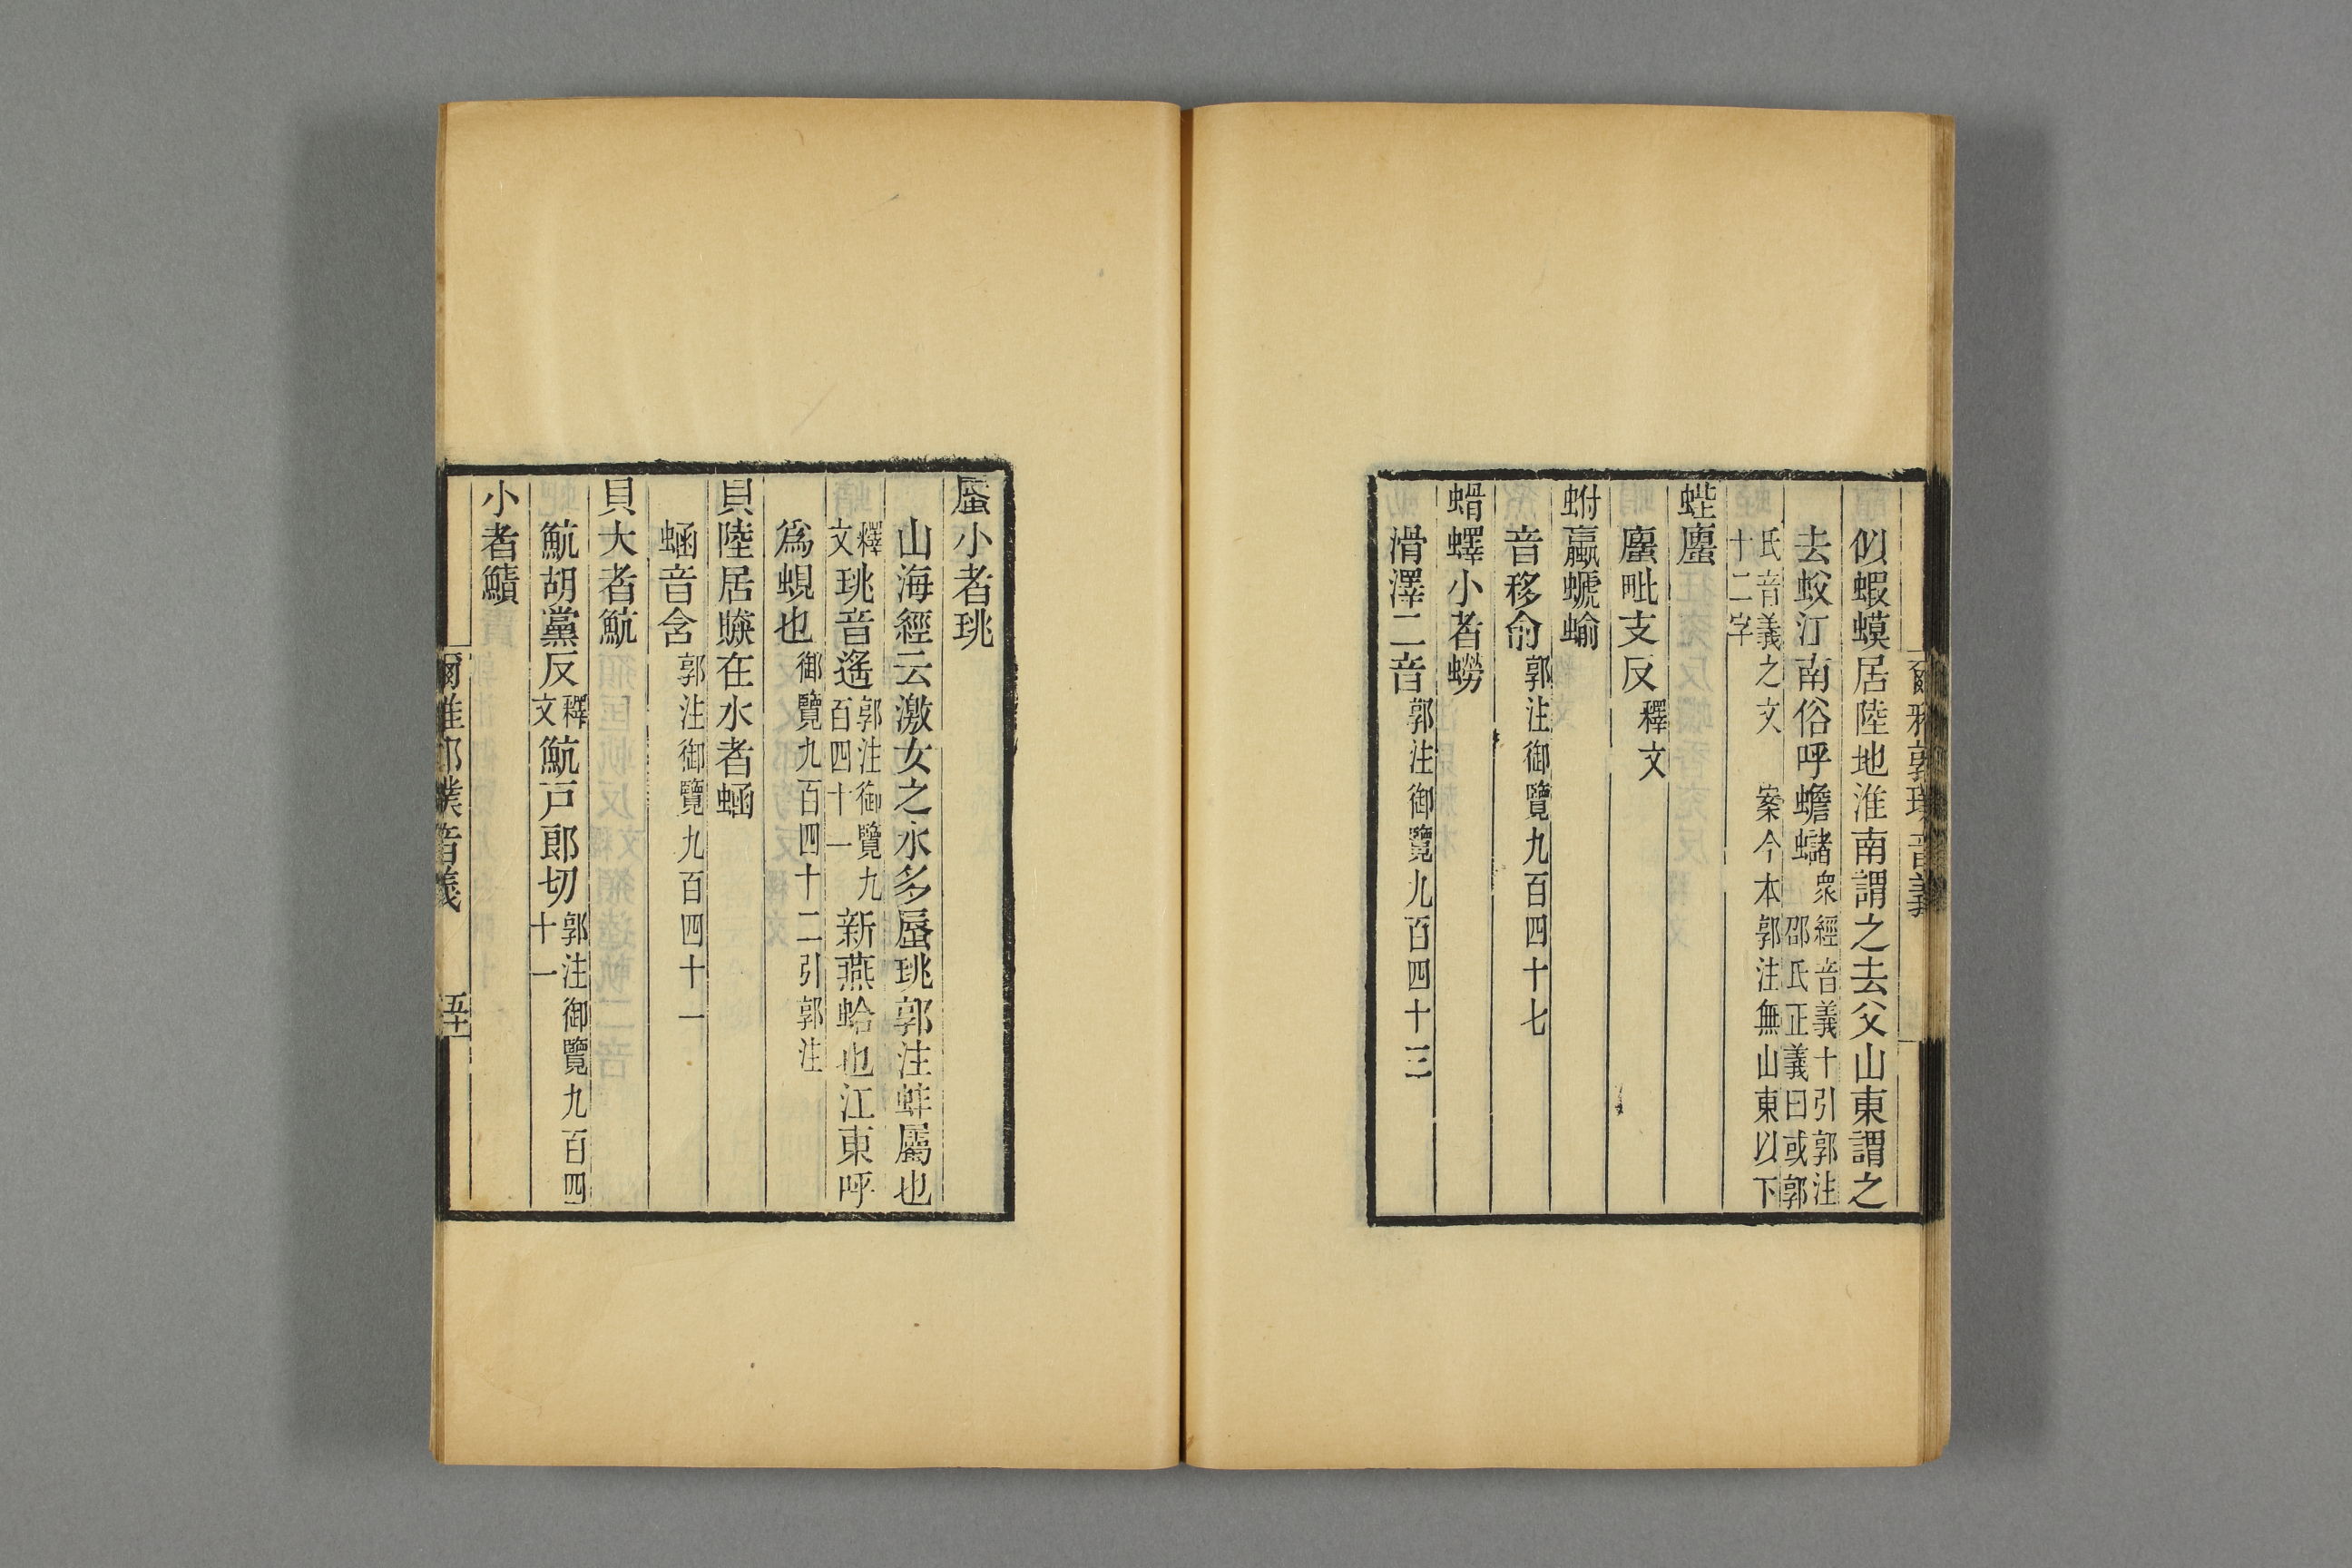 爾雅郭璞音義
似蝦蟆居陸地淮南謂之去父山東謂之
去蚁江南俗呼蟾蠩衆經音義十引郭注邵氏正義曰或郭
氏音義之文 案今本郭注無山東以下十二字
蜌螷
螷毗支反釋文
蚹蠃螔蝓
音移俞郭注御覽九百四十七
蝐蠌小者蟧
滑澤二音郭注御覽九百四十三
蜃小者珧
山海經云激女之水多蜃珧郭注蚌屬也
釋文珧音遙郭注御覽九百四十一新燕蛤也江東呼
爲蜆也御覽九百四十二引郭注
貝陸居賧在水者蜬
蜬音含郭注御覽九百四十一
貝大者魧
魧胡黨反釋文魧戸郎切郭注御覽九百四十一
小者鰿
爾雅郭璞音義 五十